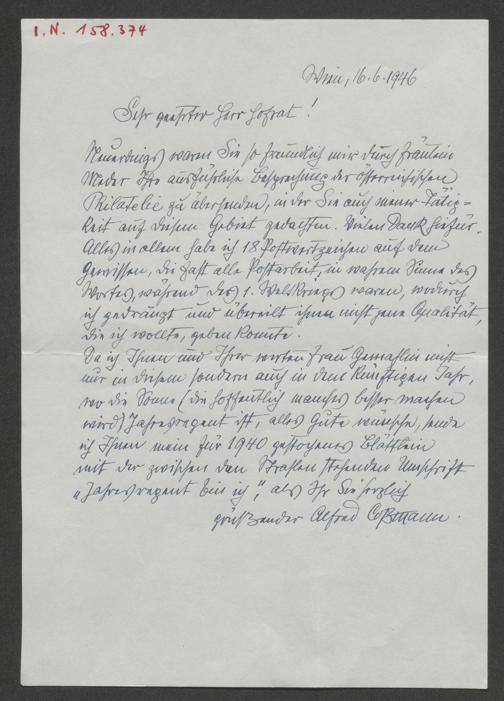 I.N. 158.374
Wien, 16.6.1946
Sehr geehrter Herr Hofrat!
Neuerdings waren Sie so freundlich mir durch Fräulein
Ihre ausführliche Besprechung der österreichischen
Philatelie zu übersenden, in der Sie auch meiner Tätig=
keit auf diesem Gebiet gedachten. Vielen Dank hiefür.
Alles in allem habe ich 18 Postwertzeichen auf dem
Gewissen, die fast alle Postarbeit, in wahrem Sinne des
Wortes, während des 1. Weltkrieges waren, wodurch
ich gedrängt und übereilt ihnen nicht jene Qualität,
die ich wollte, geben konnte.
Da ich Ihnen und Ihrer werten Frau Gemahlin nicht
nur in diesem sondern auch in dem künftigen Jahr,
wo die Sonne (die hoffentlich manches besser machen
wird) Jahresregent ist, alles Gute wünsche, sende
ich Ihnen mein für 1940 gestochenes Blättlein
mit der zwischen den Strahlen stehenden Umschrift
„Jahresregent bin ich", als Ihr Sie herzlich
grüßender Alfred Coßmann.